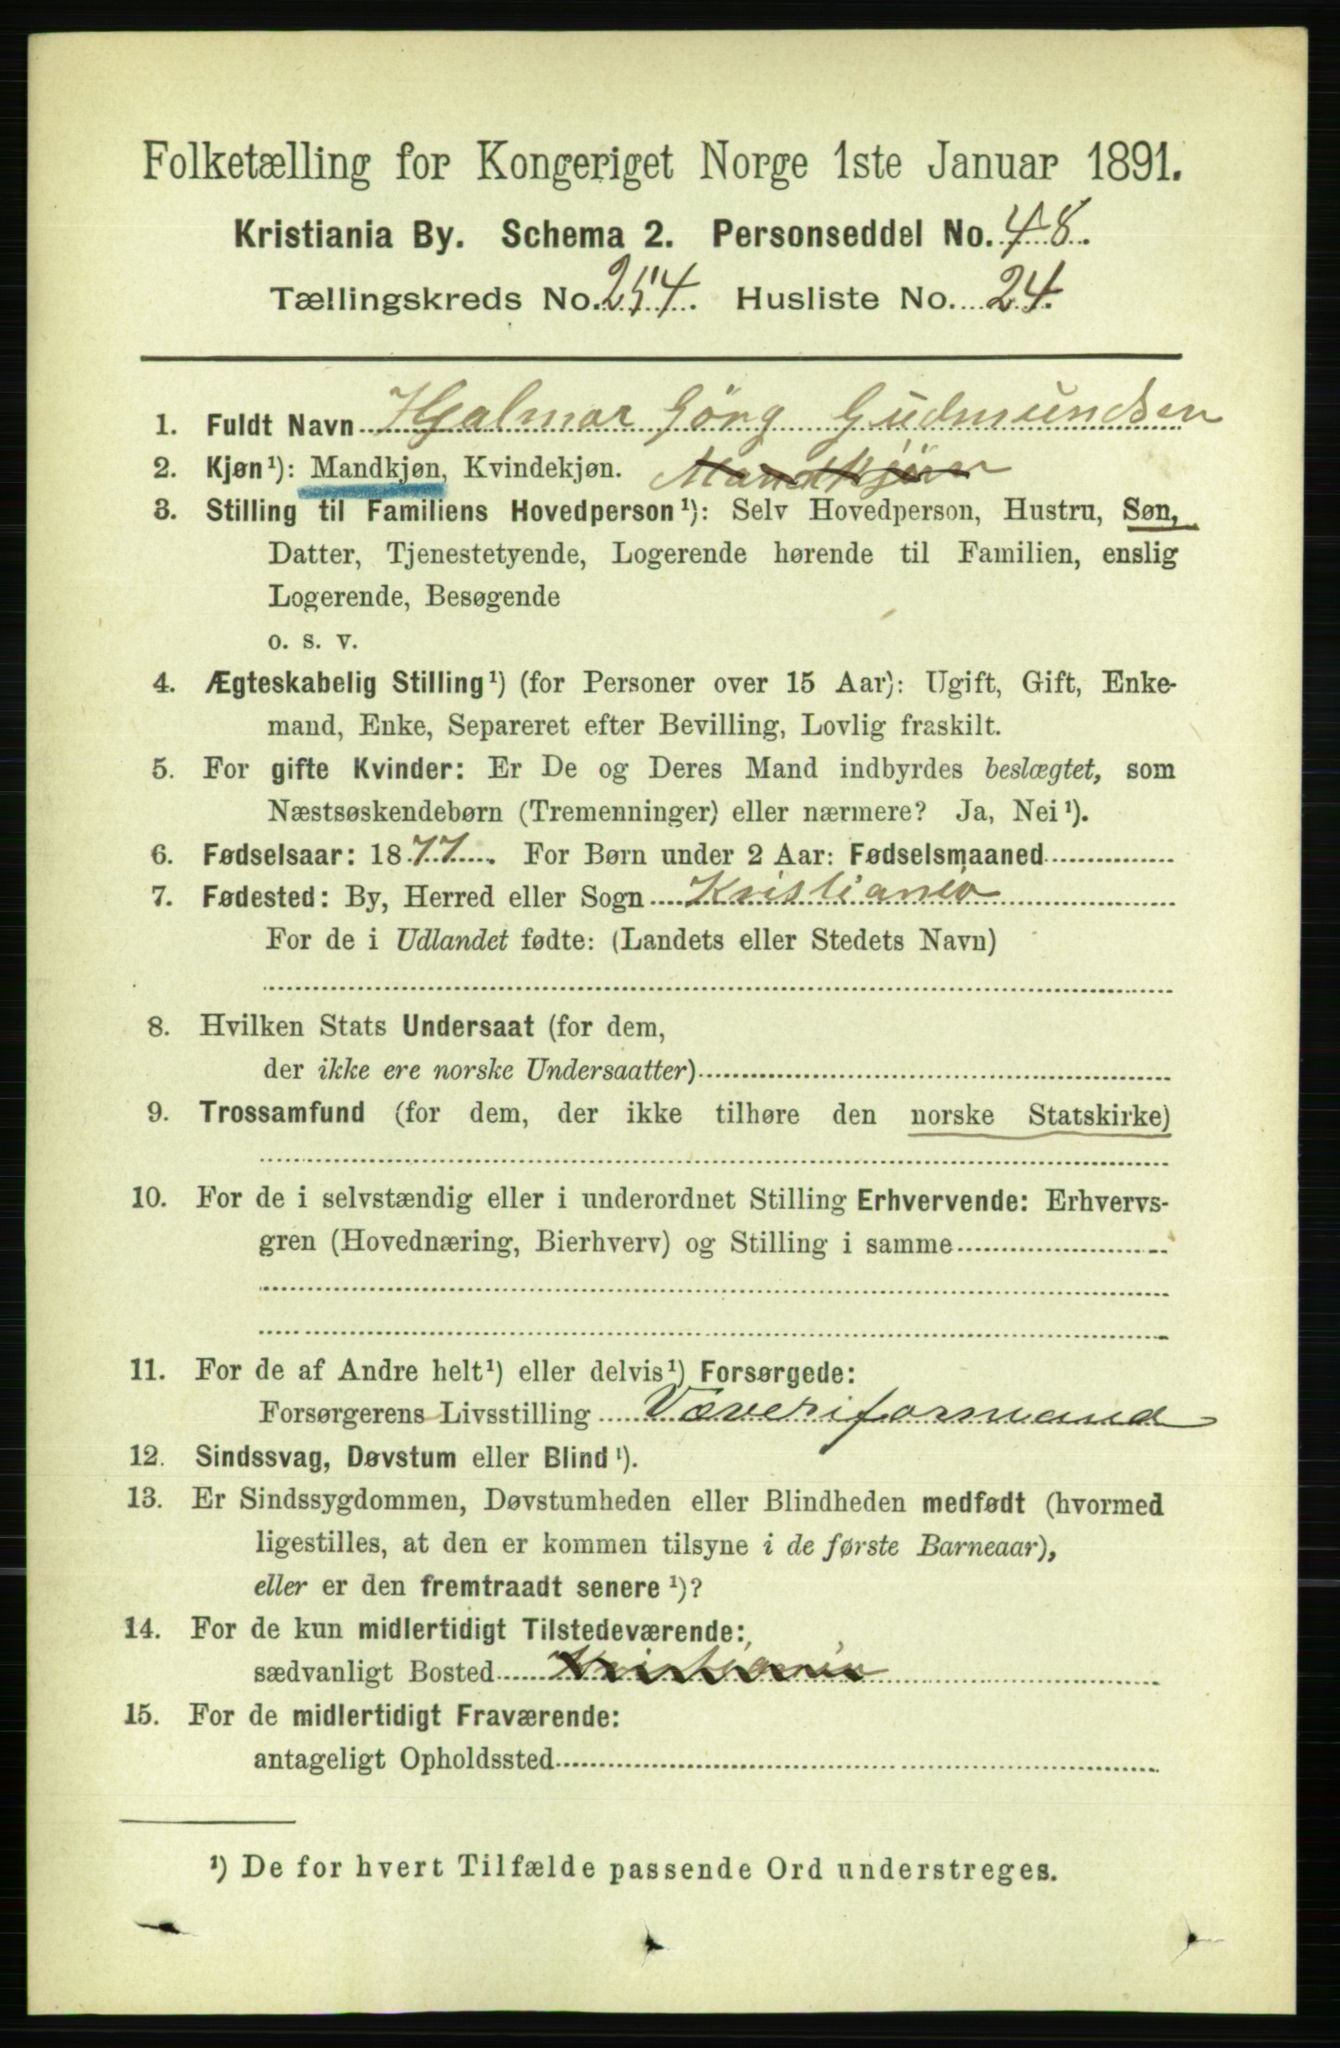 Folketælling for Kongeriget Norge 1ste Januar 1891.
Kristiania By. Schema 2. Personseddel No. 48.
Tællingskreds No. 254. Husliste No. 24.
1. Fuldt Navn Hjalmar Görg Gudmundsen
2. Kjøn¹): Mandkjøn, Kvindekjøn. Mandkjøn
3. Stilling til Familiens Hovedperson¹): Selv Hovedperson, Hustru, Søn,
Datter, Tjenestetyende, Logerende hørende til Familien, enslig
Logerende, Besøgende
o. s. v.
4. Ægteskabelig Stilling¹) (for Personer over 15 Aar): Ugift, Gift, Enke-
mand, Enke, Separeret efter Bevilling, Lovlig fraskilt.
5. For gifte Kvinder: Er De og Deres Mand indbyrdes beslægtet, som
Næstsøskendebørn (Tremenninger) eller nærmere? Ja, Nei¹).
6. Fødselsaar: 1877. For Børn under 2 Aar: Fødselsmaaned
7. Fødested: By, Herred eller Sogn Kristiania
For de i Udlandet fødte: (Landets eller Stedets Navn)
8. Hvilken Stats Undersaat (for dem,
der ikke ere norske Undersaatter)
9. Trossamfund (for dem, der ikke tilhøre den norske Statskirke)
10. For de i selvstændig eller i underordnet Stilling Erhvervende: Erhvervs-
gren (Hovednæring, Bierhverv) og Stilling i samme
11. For de af Andre helt¹) eller delvis¹) Forsørgede:
Forsørgerens Livsstilling Væveriformand
12. Sindssvag, Døvstum eller Blind¹).
13. Er Sindssygdommen, Døvstumheden eller Blindheden medfødt (hvormed
ligestilles, at den er kommen tilsyne i de første Barneaar),
eller er den fremtraadt senere¹)?
14. For de kun midlertidigt Tilstedeværende:
sædvanligt Bosted Kristiania
15. For de midlertidigt Fraværende:
antageligt Opholdssted
¹) De for hvert Tilfælde passende Ord understreges.